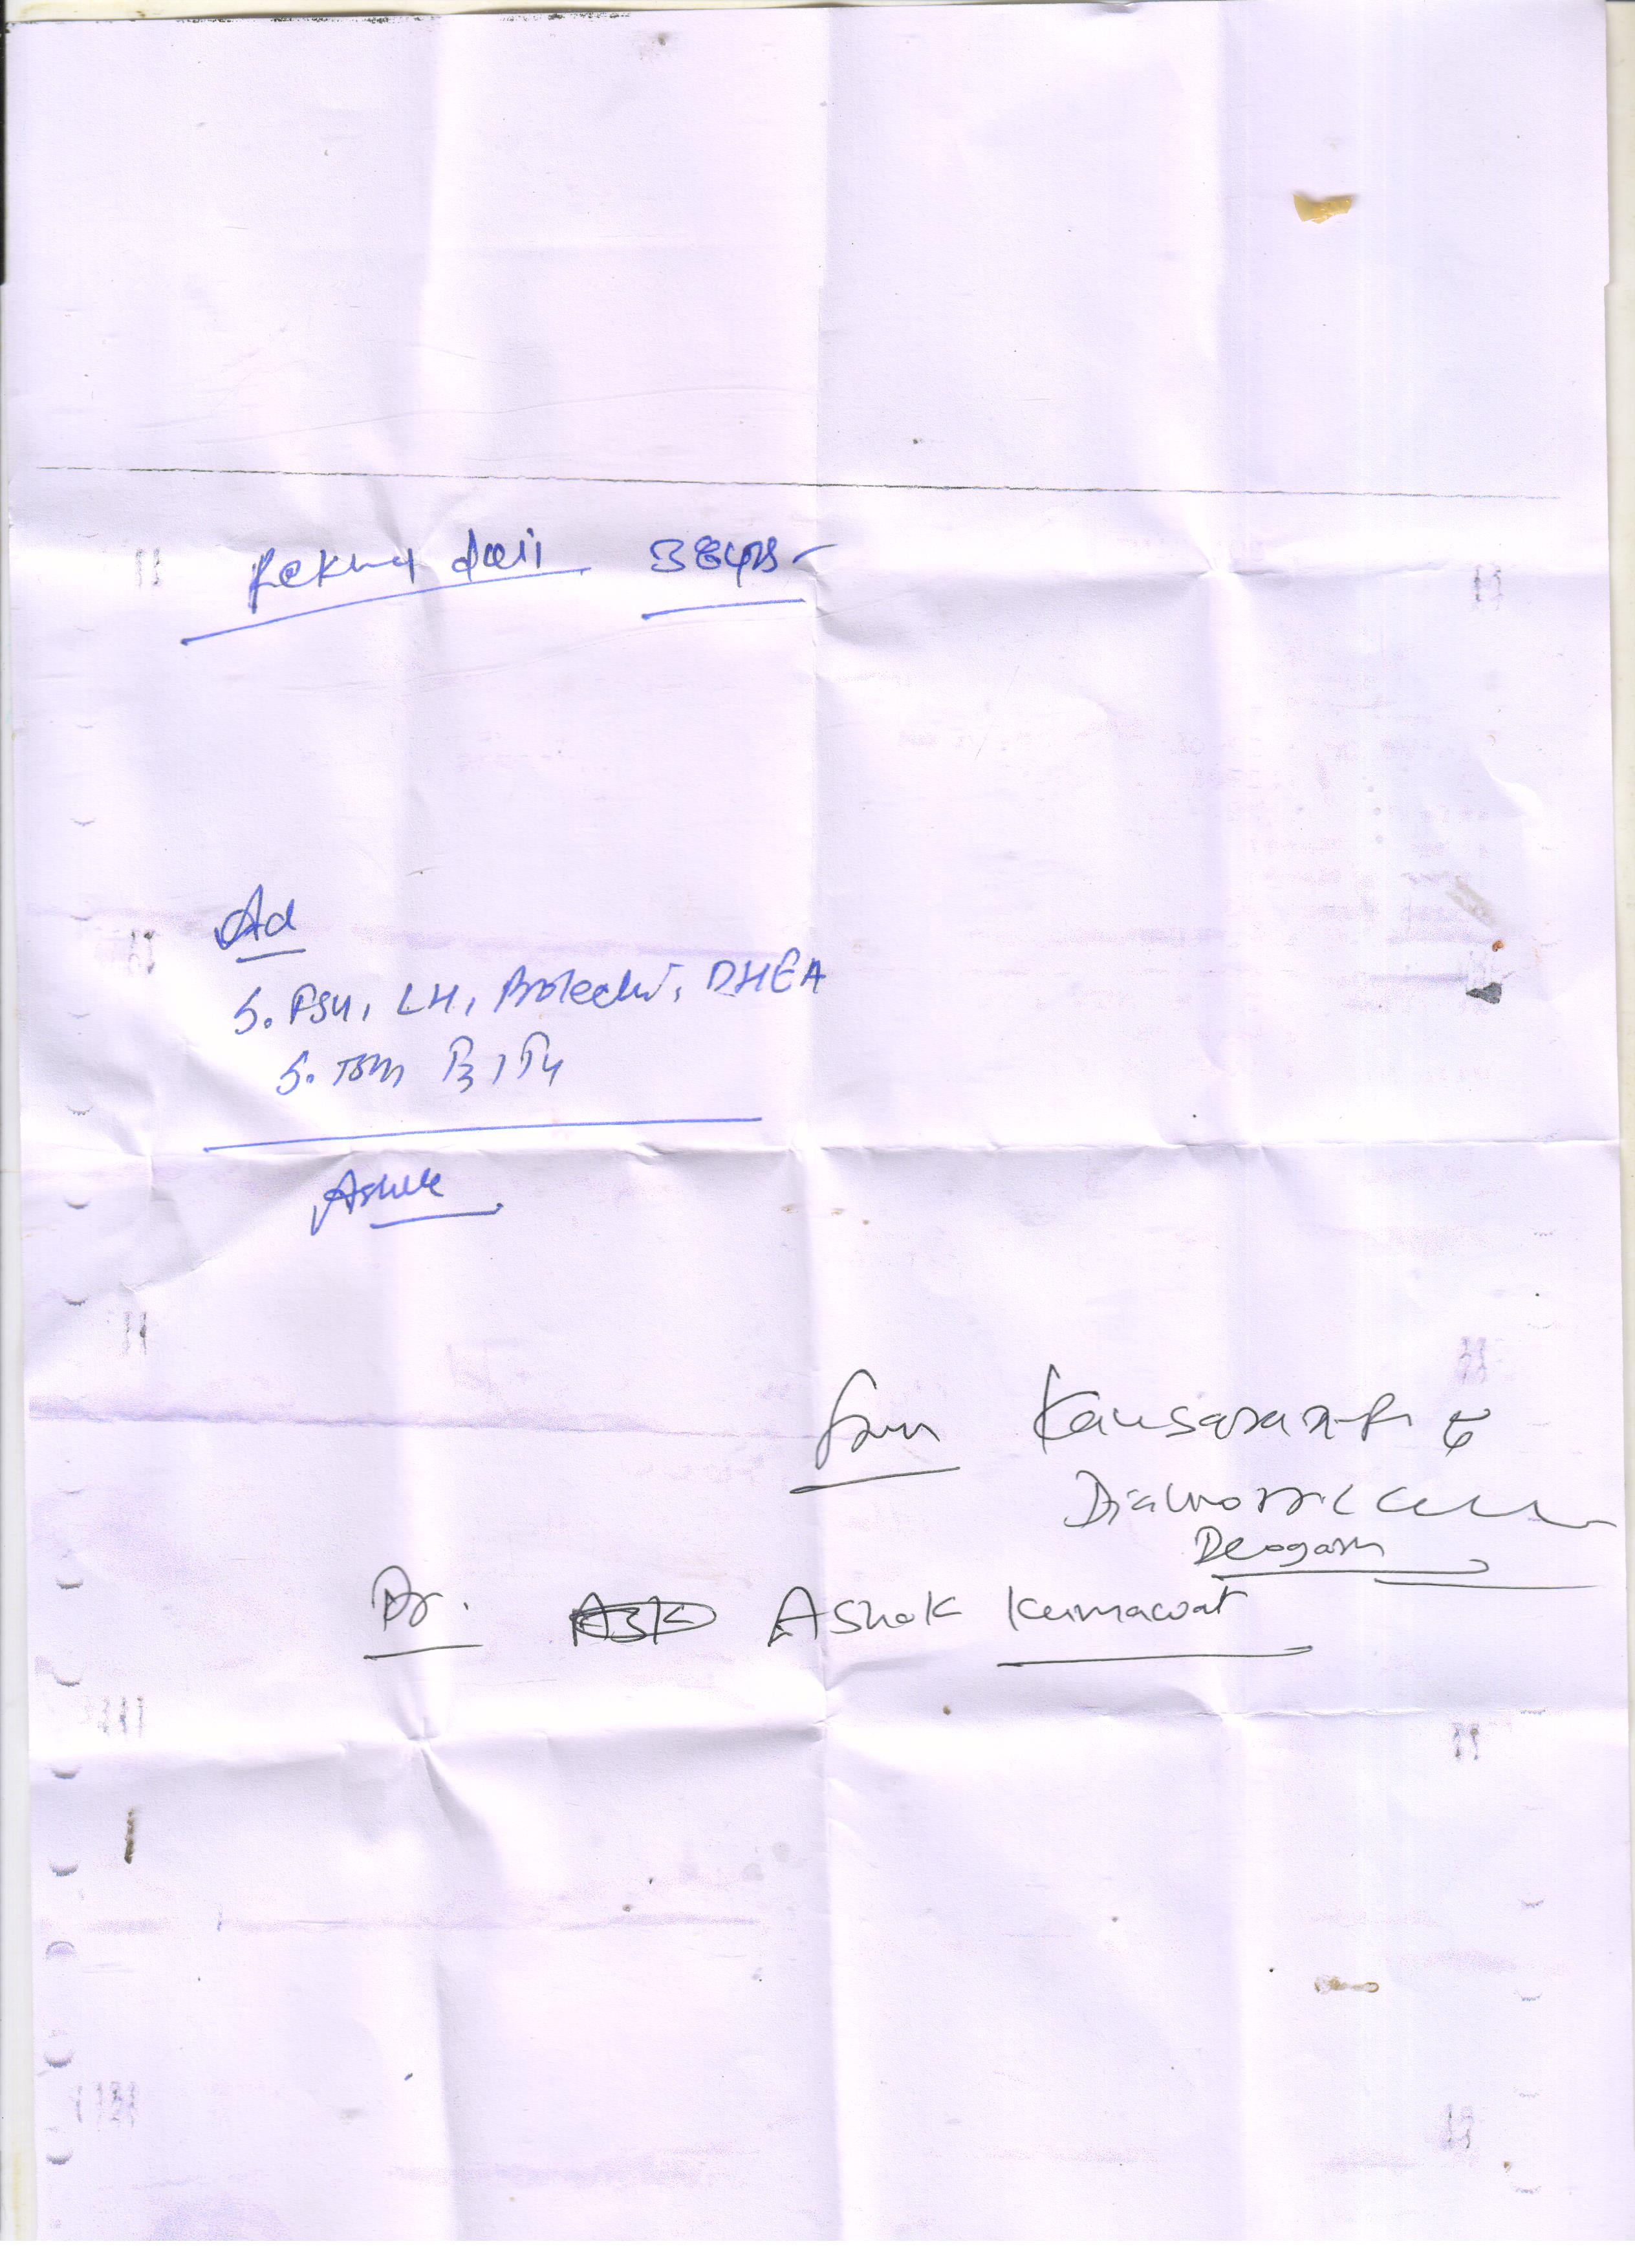 Rekha dari 38yrs
Ad
S. FSH, LH, Prolactin, DHEA
S. TSH T3, T4
Ashok
from Kansara X-Ray &
Diagnostic Center
Deogarh
Dr. Ashok Kumawat